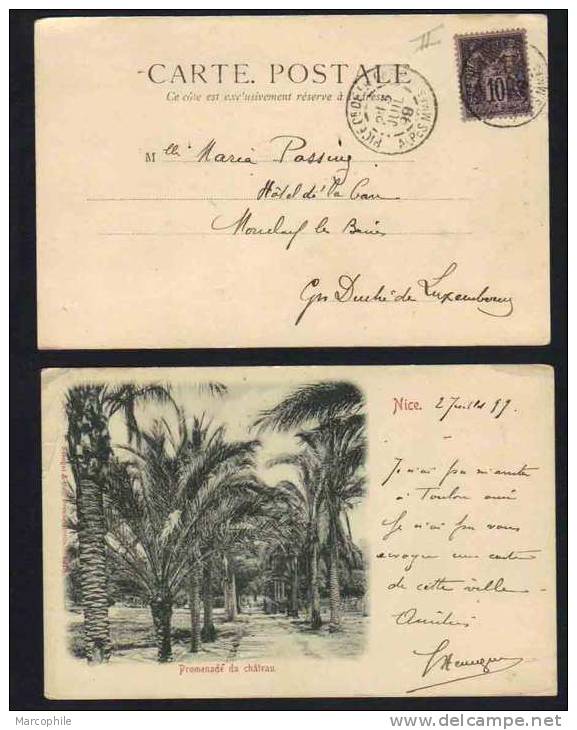 CARTE POSTALE
Ce côté est exclusivement réservé à l'adresse
10
JUIL
99
ALPES MMES
Mlle Maria Passing
Hôtel de la Gare
Mondorf les Bains
Gd Duché de Luxembourg
Nice. 2 Juillet 99.
Je n'ai pu m'arrêter
à Toulon aussi
Je n'ai pu vous
envoyer une carte
de cette ville
Amitiés
Promenade du château.
Marcophile
www.delcampe.net